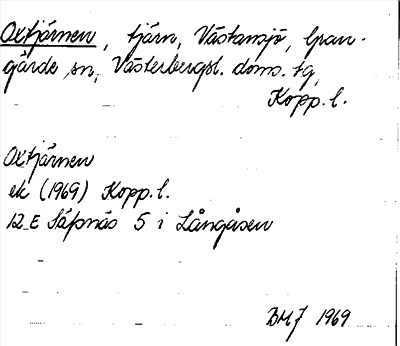 Oxtjärnen, tjärn, Västansjö, Gran-
gärde sn, Västerbergsl. doms. tg,
Kopp. l.
Oxtjärnen
ek (1969) Kopp. l.
12 E Säfsnäs 5 i Långåsen
BMJ 1969